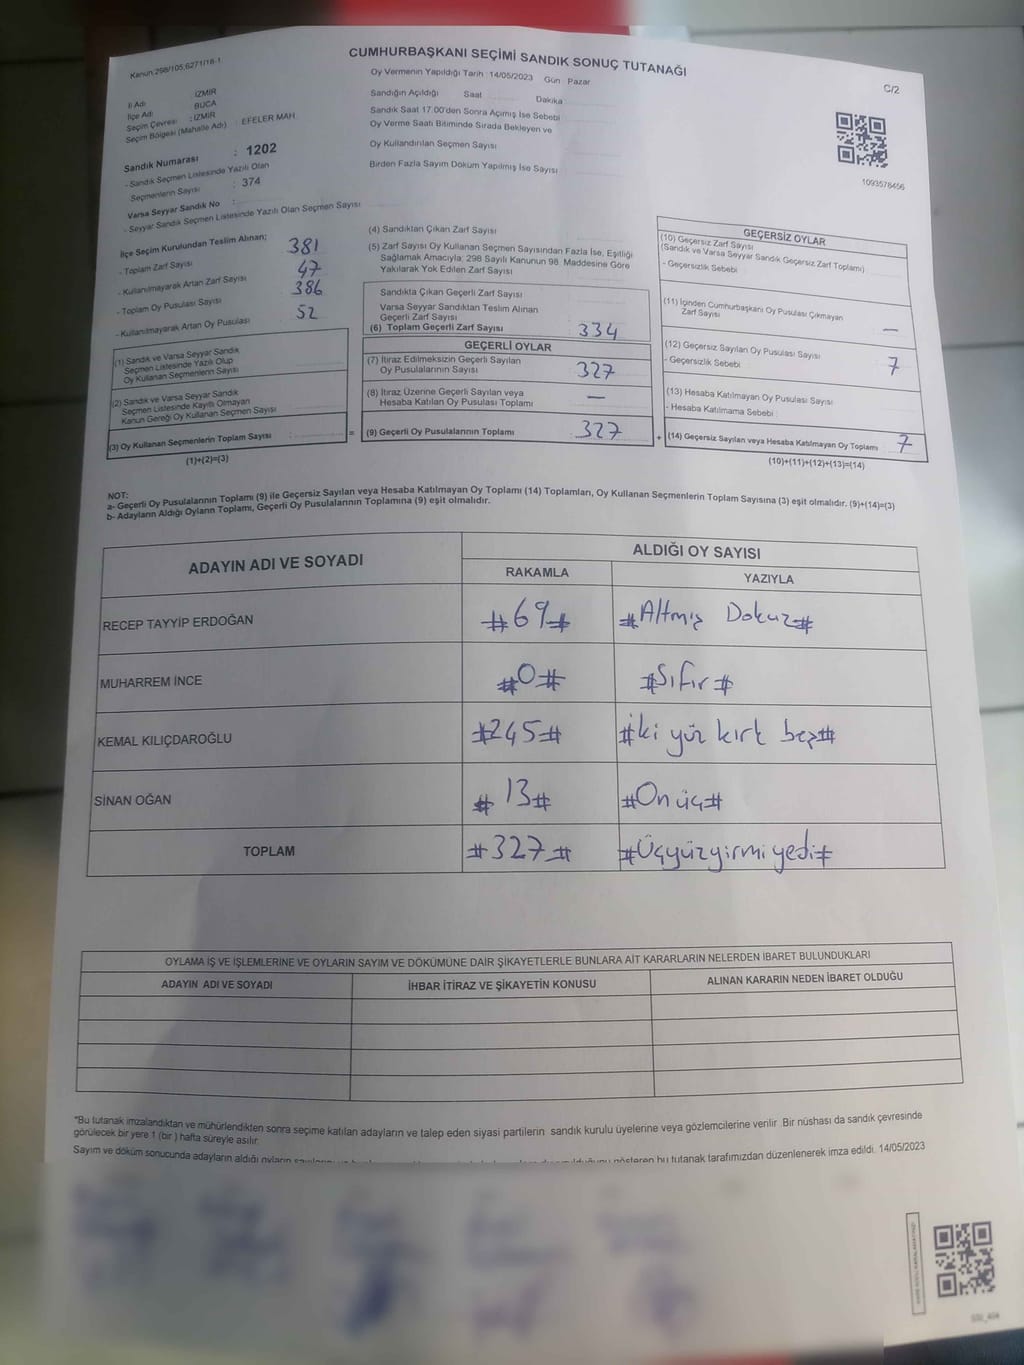 Kanun:298/105,6271/18-1
CUMHURBAŞKANI SEÇİMİ SANDIK SONUÇ TUTANAĞI
C/2
Oy Vermenin Yapıldığı Tarih : 14/05/2023 Gün Pazar
İl Adı : İZMİR
İlçe Adı : BUCA
Seçim Çevresi : İZMİR
Seçim Bölgesi (Mahalle Adı) : EFELER MAH.
Sandığın Açıldığı Saat Dakika
Sandık Saat 17.00'den Sonra Açımış İse Sebebi
Oy Verme Saati Bitiminde Sırada Bekleyen ve
Oy Kullandırılan Seçmen Sayısı
Birden Fazla Sayım Döküm Yapılmış İse Sayısı
1093578456
Sandık Numarası : 1202
- Sandık Seçmen Listesinde Yazılı Olan
Seçmenlerin Sayısı : 374
Varsa Seyyar Sandık No :
- Seyyar Sandık Seçmen Listesinde Yazılı Olan Seçmen Sayısı
İlçe Seçim Kurulundan Teslim Alınan;
- Toplam Zarf Sayısı 381
- Kullanılmayarak Artan Zarf Sayısı 47
- Toplam Oy Pusulası Sayısı 386
- Kullanılmayarak Artan Oy Pusulası 52
(1) Sandık ve Varsa Seyyar Sandık
Seçmen Listesinde Yazılı Olup
Oy Kullanan Seçmenlerin Sayısı
(2) Sandık ve Varsa Seyyar Sandık
Seçmen Listesinde Kayıtlı Olmayan
Kanun Gereği Oy Kullanan Seçmen Sayısı
(3) Oy Kullanan Seçmenlerin Toplam Sayısı :
(1)+(2)=(3)
=
(4) Sandıktan Çıkan Zarf Sayısı
(5) Zarf Sayısı Oy Kullanan Seçmen Sayısından Fazla İse, Eşitliği
Sağlamak Amacıyla; 298 Sayılı Kanunun 98. Maddesine Göre
Yakılarak Yok Edilen Zarf Sayısı
Sandıkta Çıkan Geçerli Zarf Sayısı
Varsa Seyyar Sandıktan Teslim Alınan
Geçerli Zarf Sayısı
(6) Toplam Geçerli Zarf Sayısı 334
GEÇERLİ OYLAR
(7) İtiraz Edilmeksizin Geçerli Sayılan
Oy Pusulalarının Sayısı 327
(8) İtiraz Üzerine Geçerli Sayılan veya
Hesaba Katılan Oy Pusulası Toplamı —
(9) Geçerli Oy Pusulalarının Toplamı 327
+
GEÇERSİZ OYLAR
(10) Geçersiz Zarf Sayısı
(Sandık ve Varsa Seyyar Sandık Geçersiz Zarf Toplamı)
- Geçersizlik Sebebi
(11) İçinden Cumhurbaşkanı Oy Pusulası Çıkmayan
Zarf Sayısı —
(12) Geçersiz Sayılan Oy Pusulası Sayısı 7
- Geçersizlik Sebebi
(13) Hesaba Katılmayan Oy Pusulası Sayısı
- Hesaba Katılmama Sebebi :
(14) Geçersiz Sayılan veya Hesaba Katılmayan Oy Toplamı 7
(10)+(11)+(12)+(13)=(14)
NOT:
a- Geçerli Oy Pusulalarının Toplamı (9) ile Geçersiz Sayılan veya Hesaba Katılmayan Oy Toplamı (14) Toplamları, Oy Kullanan Seçmenlerin Toplam Sayısına (3) eşit olmalıdır. (9)+(14)=(3)
b- Adayların Aldığı Oyların Toplamı, Geçerli Oy Pusulalarının Toplamına (9) eşit olmalıdır.
ADAYIN ADI VE SOYADI
ALDIĞI OY SAYISI
RAKAMLA YAZIYLA
RECEP TAYYİP ERDOĞAN #69# #Altmış Dokuz#
MUHARREM İNCE #0# #Sıfır#
KEMAL KILIÇDAROĞLU #245# #İki yüz kırk beş#
SİNAN OĞAN #13# #On üç#
TOPLAM #327# #Üçyüzyirmi yedi#
OYLAMA İŞ VE İŞLEMLERİNE VE OYLARIN SAYIM VE DÖKÜMÜNE DAİR ŞİKAYETLERLE BUNLARA AİT KARARLARIN NELERDEN İBARET BULUNDUKLARI
ADAYIN ADI VE SOYADI İHBAR İTİRAZ VE ŞİKAYETİN KONUSU ALINAN KARARIN NEDEN İBARET OLDUĞU
*Bu tutanak imzalandıktan ve mühürlendikten sonra seçime katılan adayların ve talep eden siyasi partilerin sandık kurulu üyelerine veya gözlemcilerine verilir. Bir nüshası da sandık çevresinde
görülecek bir yere 1 (bir) hafta süreyle asılır.
Sayım ve döküm sonucunda adayların aldığı oyların gösteren bu tutanak tarafımızdan düzenlenerek imza edildi. 14/05/2023